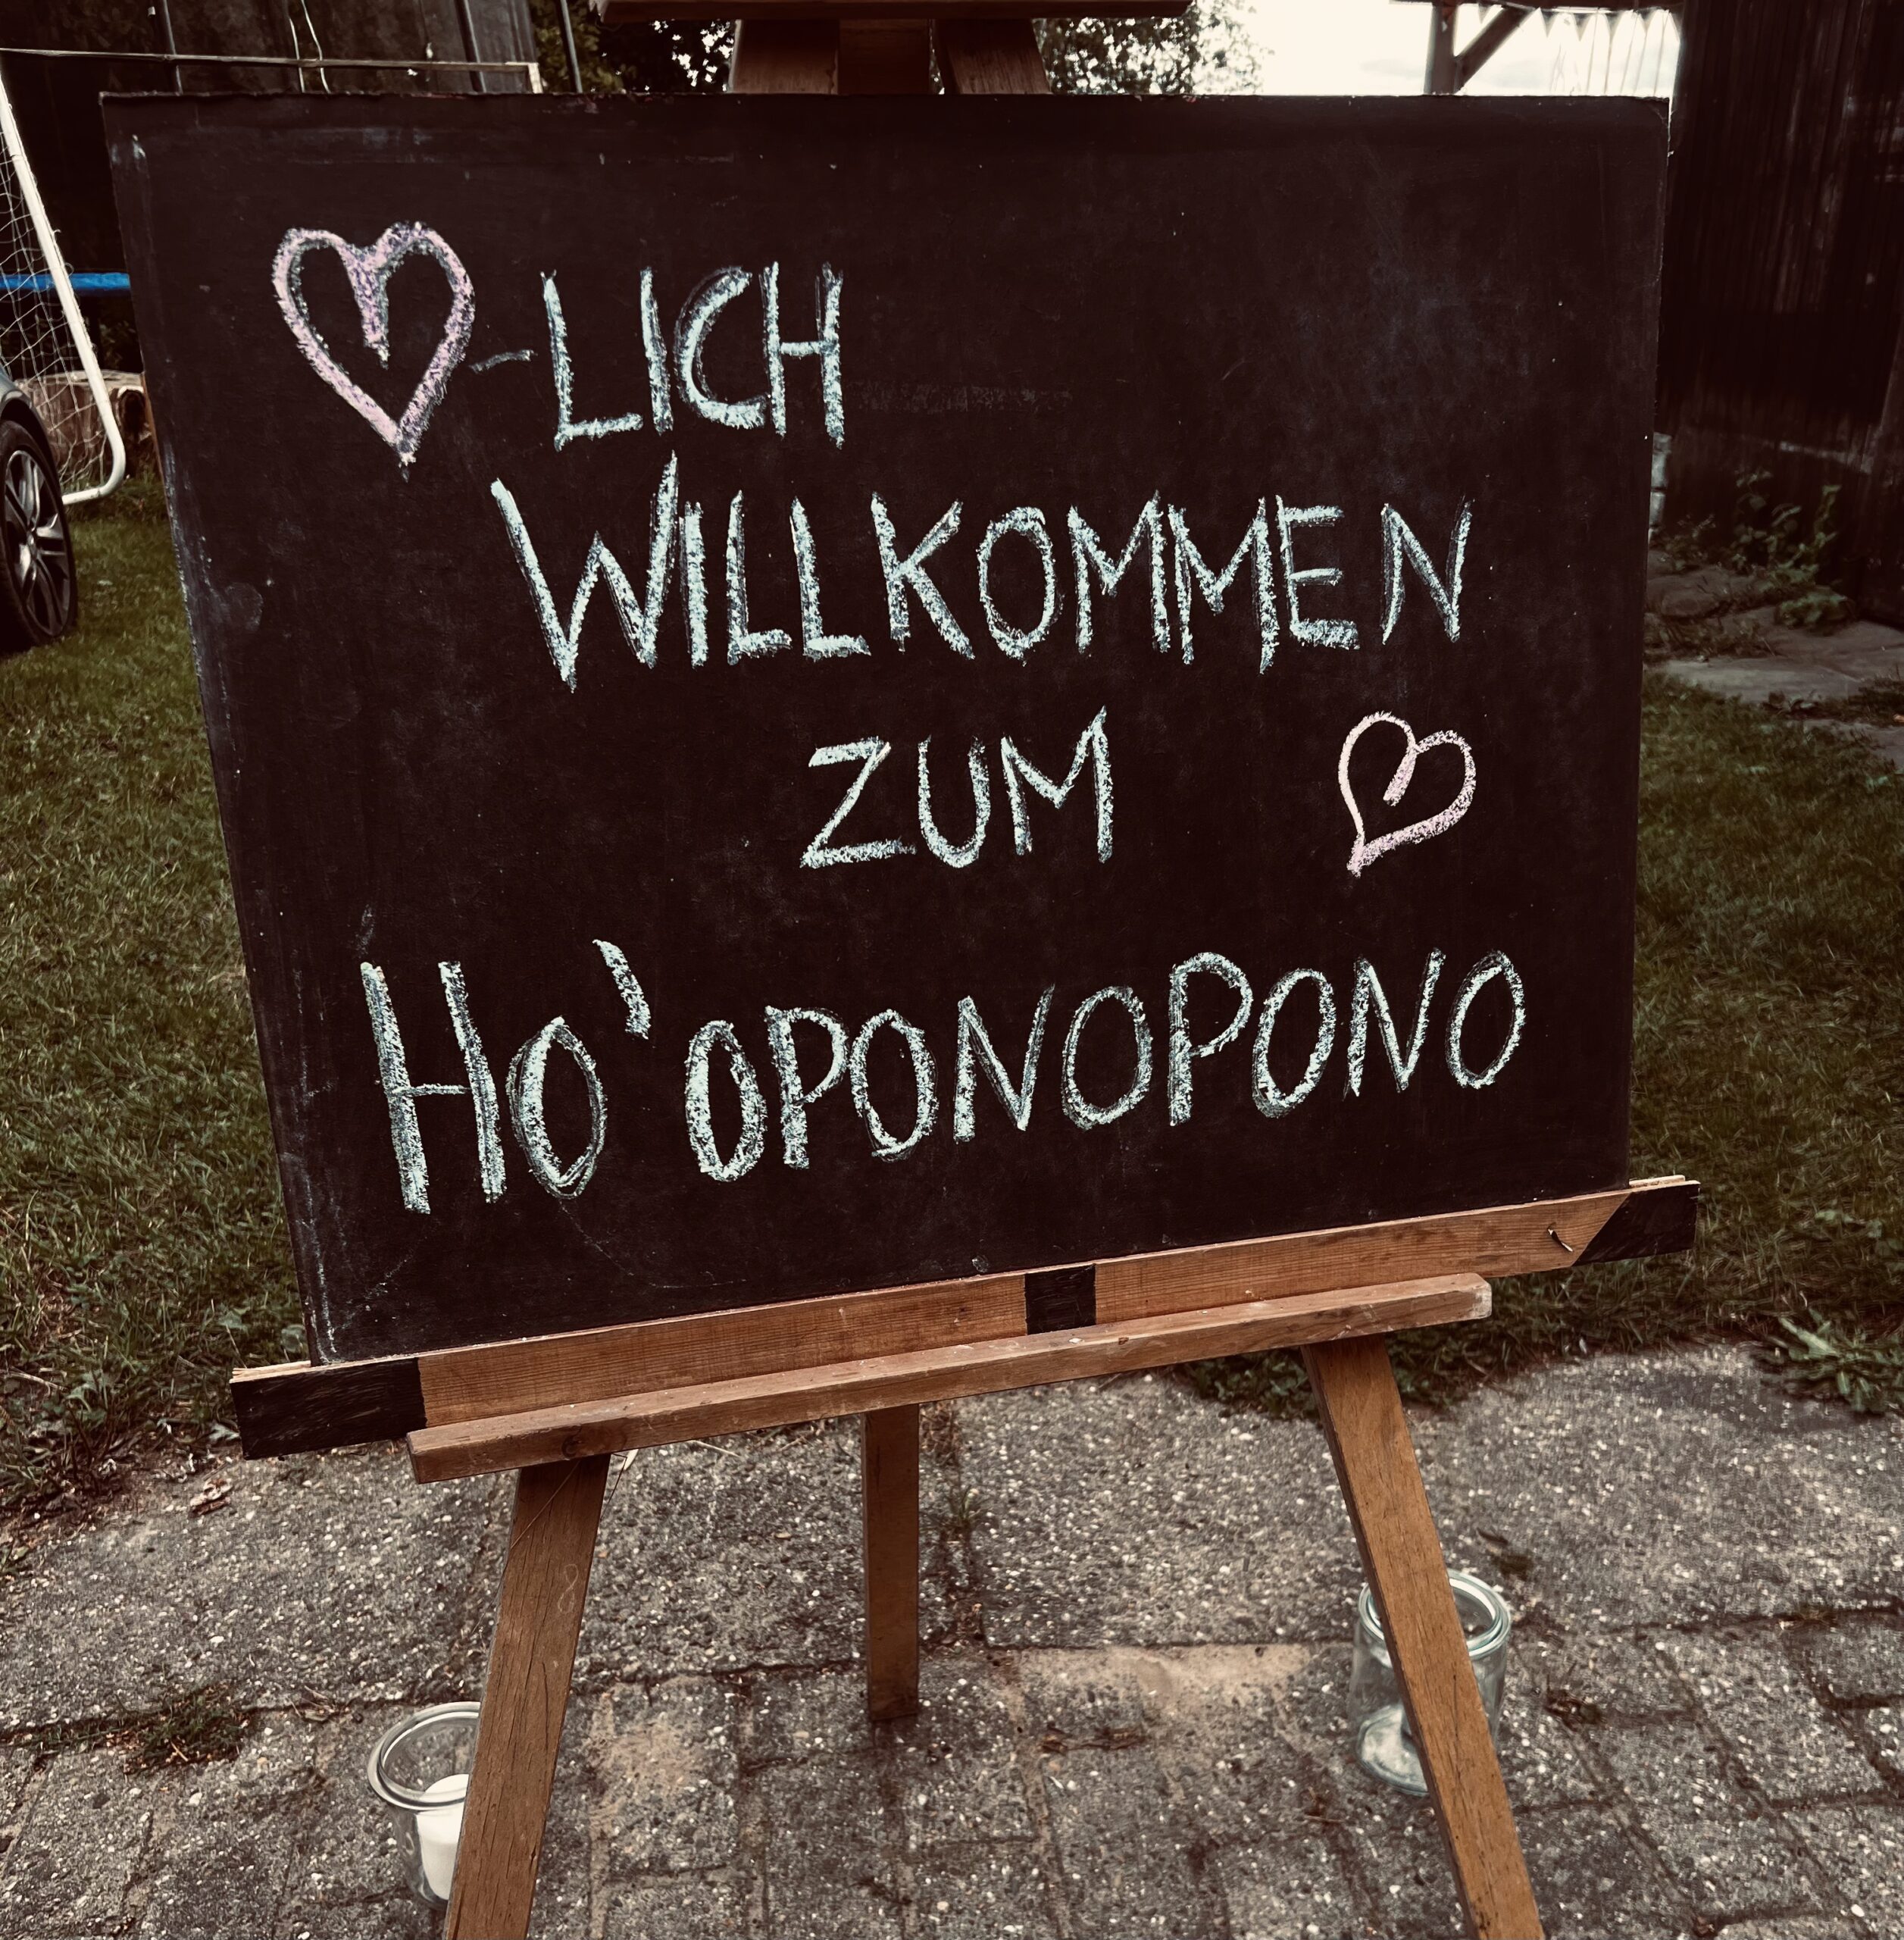 ♡-LICH
WILLKOMMEN
ZUM ♡
HO'OPONOPONO